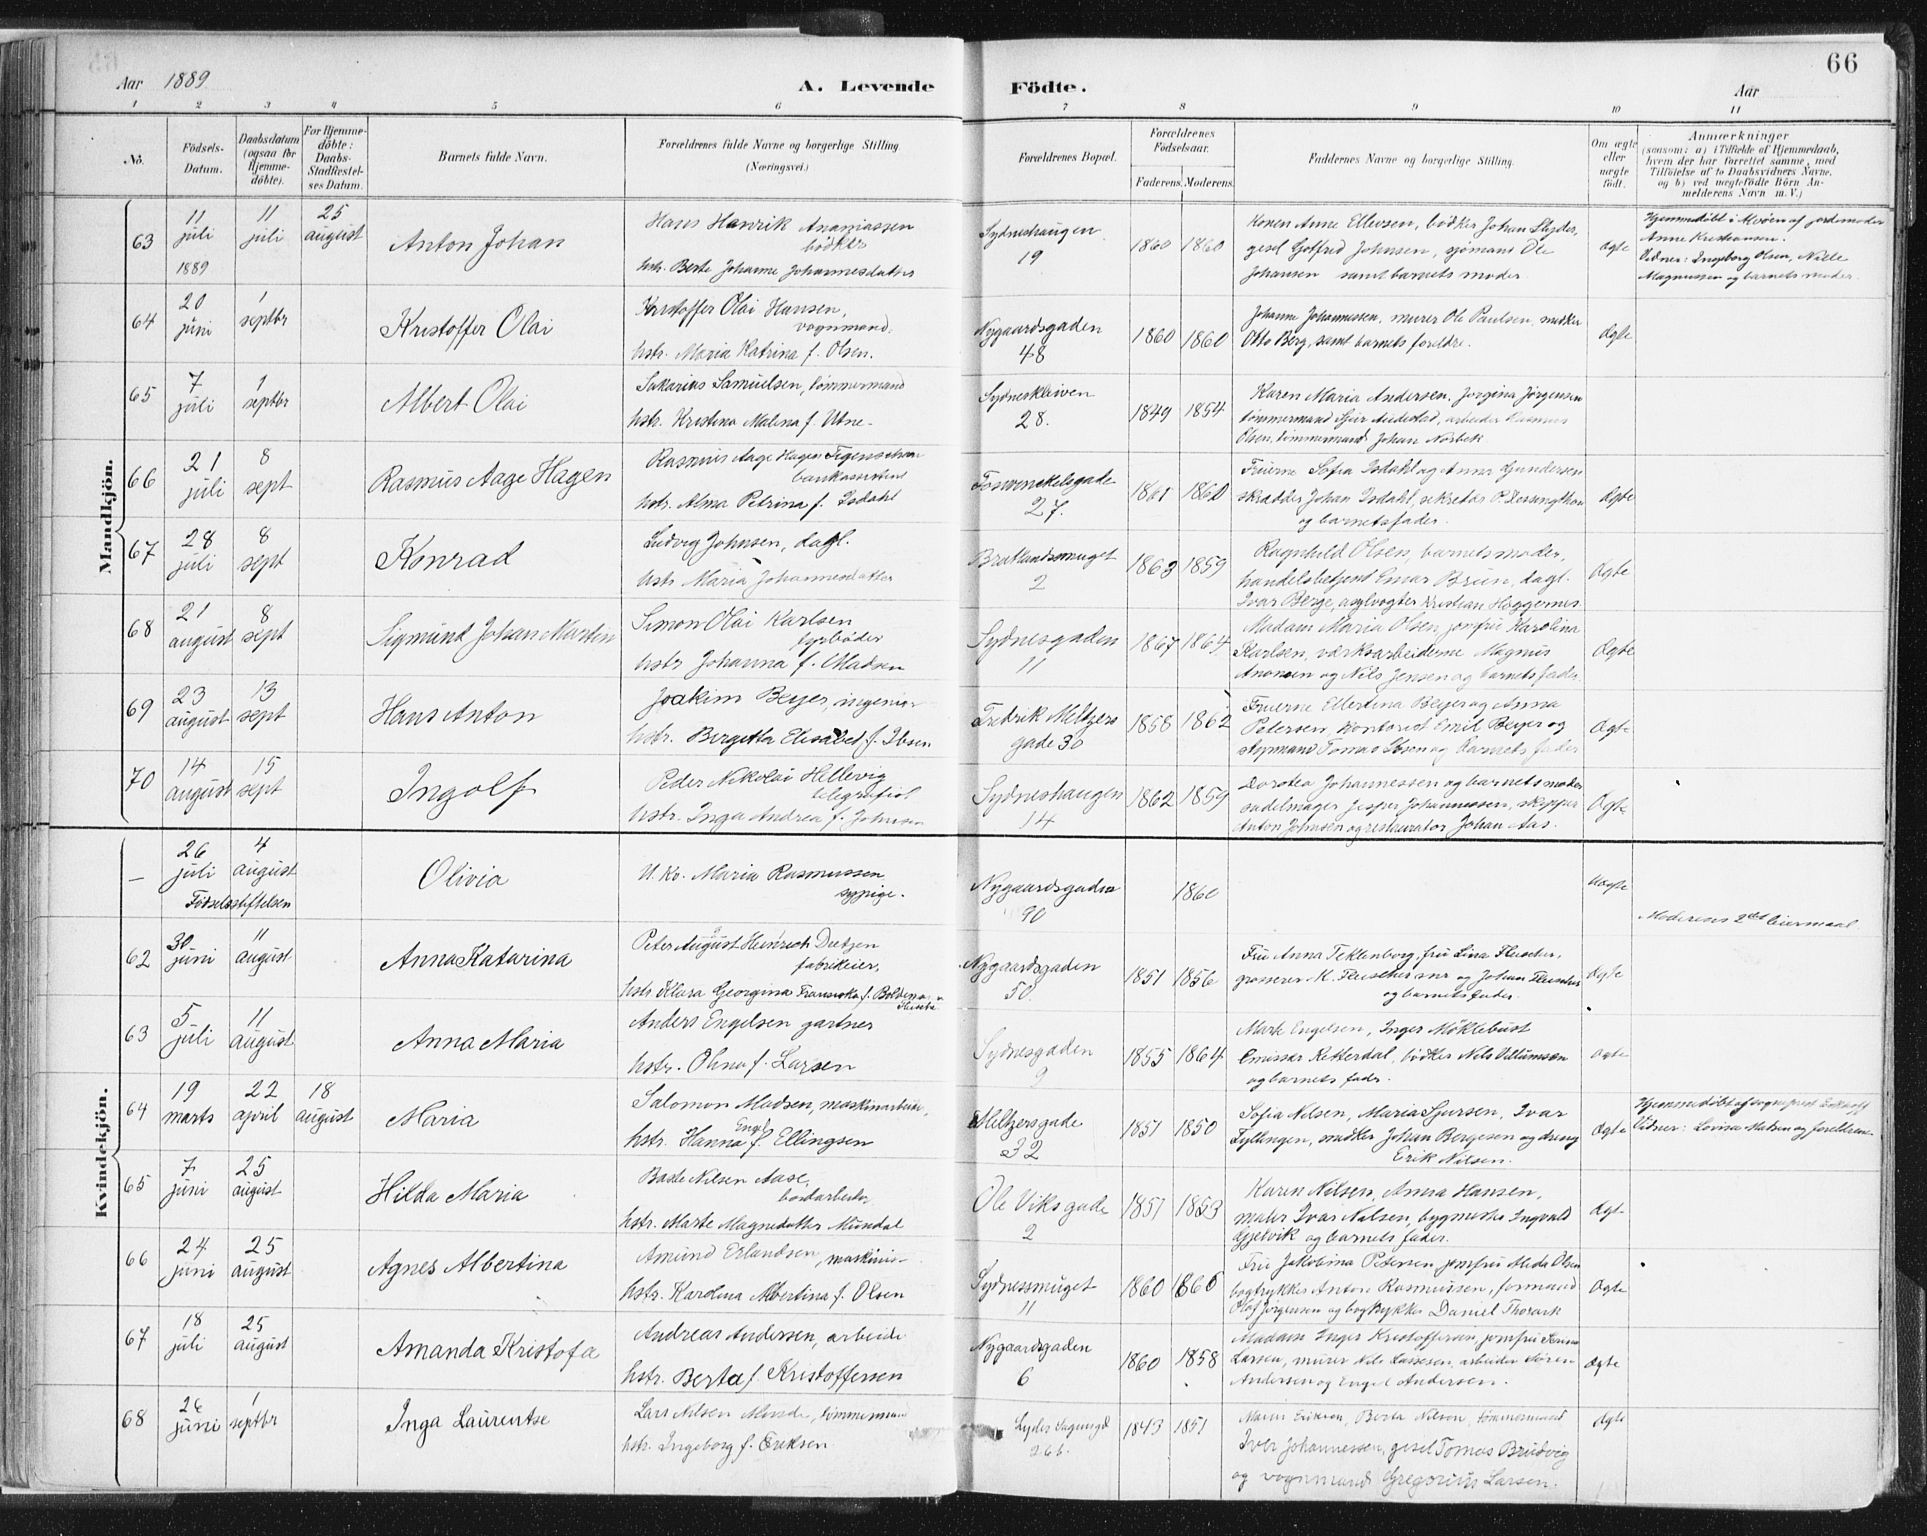 66
Aar 1889
A. Levende Födte.
Aar
1 2 3 4 5 6 7 8 9 10 11
No.
Födsels-Datum.
Daabsdatum (ogsaa for Hjemme-döbte).
For Hjemme-döbte: Daabs-Stadfæstel-ses Datum.
Barnets fulde Navn.
Forældrenes fulde Navne og borgerlige Stilling (Næringsvei.)
Forældrenes Bopæl.
Forældrenes Födselsaar.
Faderens. Moderens.
Faddernes Navne og borgerlige Stilling.
Om ægte eller uægte født.
Anmærkninger
(saasom: a) i Tilfælde af Hjemmedaab,
hvem der har forrettet samme, med
Tilföielse af to Daabsvidners Navne,
og b) ved uægtefödte Börn An-
melderens Navn m. V.)
Mandkjön.
63
11 juli 1889
11 juli
25 august
Anton Johan
Hans Henrik Ananiassen
bödker
hstr. Berte Johanne Johannesdatter
Sydneshaugen
19
1860 1860
Konen Anne Ellevsen, bödker Johan
gesel Gotfred Johnsen, sjömand Ole
Johansen samt barnets moder
ægte
Hjemmedöbt af jordemoder
Anne Kristiansen.
Vidner: Ingeborg Olsen, Niels
Magnussen og barnets moder.
64
20 juni
1 septbr
Kristoffer Olai
Kristoffer Olai Hansen,
vognmand.
hstr. Maria Katrina f. Olsen.
Nygaardsgaden
48
1860 1860
Johanne Johannessen, murer Ole Paulsen, snedker
Otto Berg, samt barnets foreldre.
ægte
65
7 juli
1 septbr
Albert Olai
Sakarias Samuelsen, tömmermand
hstr. Kristina Malena f. Utne
Sydneskleiven
28.
1849 1854
Karen Maria Andersen, Jorgina Jörgensen
tömmermand Sjur, arbeider Rasmus
Olsen, tömmermand Johan
66
21 juli
8 sept
Rasmus Aage Hagen
Rasmus Aage Hagen
bankassistent
hstr. Alma Petrina f. Isdahl
27.
1860
Fruerne Sofia Isdahl og Anna Gundersen
skrædder Johan Isdahl, sekretær P.
og barnets fader.
ægte
67
28 juli
8 sept
Konrad
Ludvig Johnsen, dagl.
hstr Maria Johannesdatter
2
1863 1859
Ragnhild Olsen, barnets moder,
handelsbetjent Einar Bruen, dagl.
Ivar Berge, asylvogter Kristian
ægte
68
21 august
8 sept
Sigmund Johan Martin
Simon Olai Karlsen
fyrböder
hstr Johanna f. Madsen
Sydnesgaden
11
1867 1864
Madam Maria Olsen, jomfru Karolina
Karlsen, værksarbeiderne Magnus
og Nils Jensen og barnets fader.
ægte
69
23 august
13 sept
Hans Anton
Joakim Beyer, ingeniör
hstr. Birgitta Elisabet f. Ibsen
Fredrik Meltzers
gade 30
1858 1862
Fruerne Ellertina Beyer og Anna
Petersen, kontorist Emil Beyer og
Tomas Ibsen og barnets fader
ægte
70
14 august
15 sept
Ingolf
Peder Nikolai Hellevig
telegrafist
hstr. Inga Andrea f. Johnsen
Sydneshaugen
14
1862 1859
Dorotea Johannessen og barnets moder
sadelmager Jesper Johannessen, skipper
Anton Johnsen og restauratör Johan Aas.
ægte
Kvindekjön.
—
26 juli
4 august
Födselsstiftelsen
Olivia
U. Ko. Maria Rasmussen
sypige.
Nygaardsgaden
90
1860
uægte
Moderens 2det leiermaal
62
30 juni
11 august
Anna Katarina
Peter August Heinrich Dietzen
fabrikeier,
hstr Klara Georgina Fransiska f.
Nygaardsgaden
50.
1851 1856
Fru Anna Teklenborg, fru Lina Fleischer,
grosserer M. Fleischer snr og Johan Fleischer
og barnets fader.
ægte
63
5 juli
11 august
Anna Maria
Anders Engelsen gartner
hstr. Olina f. Larsen
Sydnesgaden
9
1855 1864
Engelsen, Inger Möklebust
Emissær Retterdal, bödker Nils
og barnets fader.
ægte
64
19 marts
22 april
18 august
Maria
Salomon Madsen, maskinarbeider,
hstr. Hanna Engel f. Ellingsen
Meltzersgade
32
1851 1850
Sofia Nilsen, Maria Sjursen, Ivar
Fyllingen, snedker Johan Bergesen og dreng
Erik Nilsen.
ægte
Hjemmedöbt af sogneprest
Vidner: Lovise og foreldrene
65
7 juni
25 august
Hilda Maria
Nilsen Aase,
bordarbeider,
hstr. Marte Magnedatter Mundal
Ole Viks gade
2
1851 1853
Karen Nilsen, Anna Hansen,
maler Ivar Nilsen, bygmester Ingvald
Gjelvik og barnets fader.
ægte
66
24 juni
25 august
Agnes Albertina
Amund Erlandsen, maskinist
hstr. Karolina Albertina f. Olsen
Sydnessmuget
11
1860 1860
Fru Jakobina Petersen jomfru Olsen
bogtrykker Anton Rasmussen, formand
Olaf Jörgensen og bogtrykker Daniel
ægte
67
18 juli
25 august
Amanda Kristofa
Andreas Andersen, arbeider
hstr. Berta f. Kristoffersen
Nygaardsgaden
6
1860 1858
Madam Inger Kristoffersen, jomfru
Larsen, murer Nils Lassesen, arbeider Sören
Andersen og Engel Andersen.
ægte
68
26 juni
1 septbr
Inga Laurentse
Lars Nilsen Minde, tömmermand
hstr. Ingeborg f. Eriksen
26 b.
1843 1851
Eriksen, Berta Nilsen, tömmermand
Iver Johannessen, gesel Tomas Brudvig
og vognmand Gregorius Larsen.
ægte